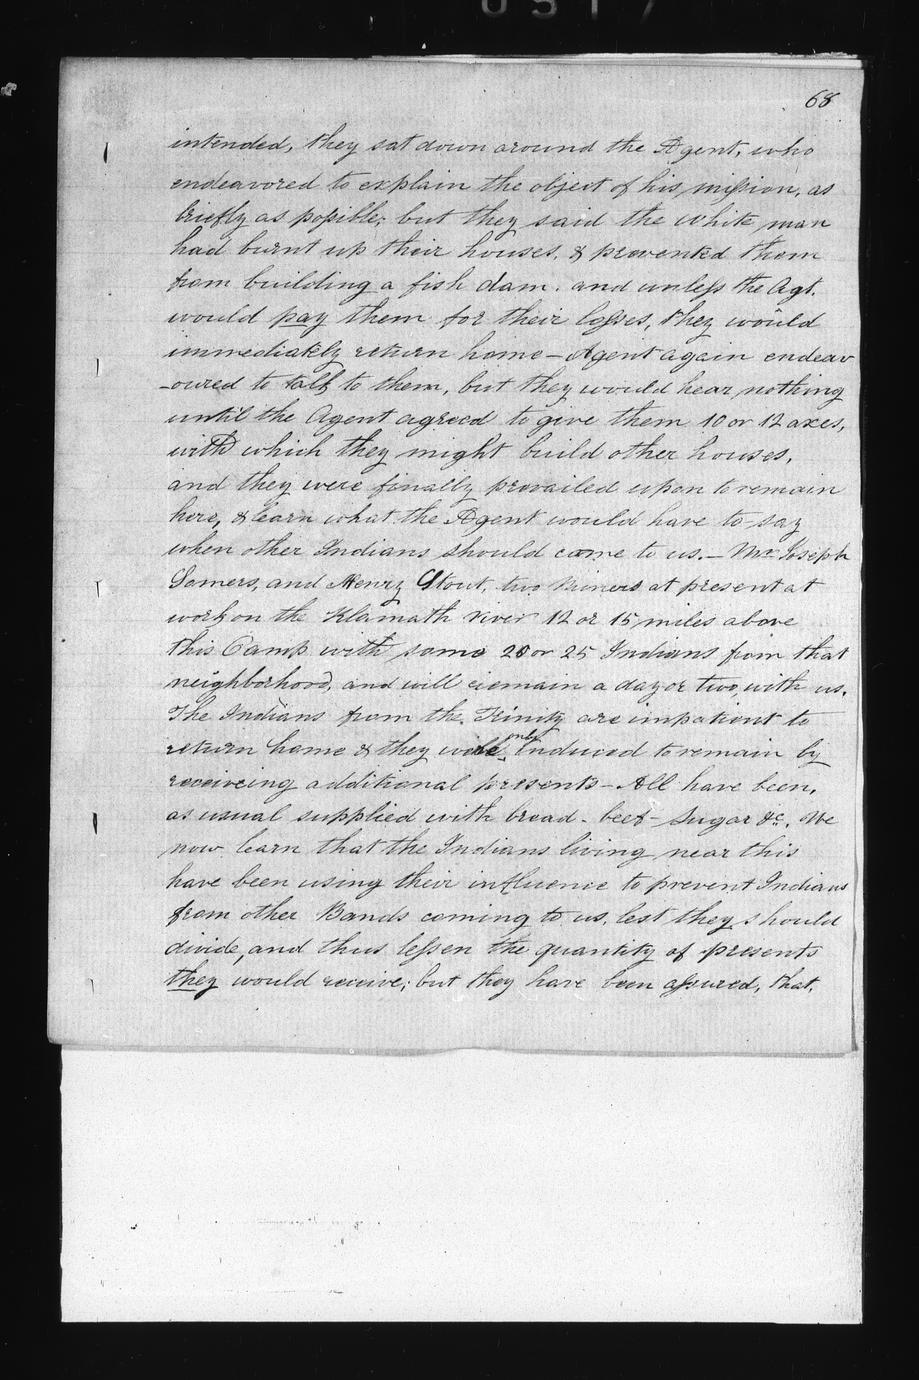 68
intended, they sat down around the Agent, who
endeavored to explain the object of his mission, as
briefly as possible; but they said the white man
had burnt up their houses, & prevented them
from building a fish dam. and unless the Agt.
would pay them for their losses, they would
immediately return home – Agent again endeav
-oured to talk to them, but they would hear nothing
until the Agent agreed to give them 10 or 12 axes,
with which they might build other houses,
and they were finally prevailed upon to remain
here, & learn what the Agent would have to say
when other Indians should come to us. – Mr. Joseph
Somers, and Henry Stout, two miners at present at
work on the Klamath river 12 or 15 miles above
this Camp with some 20 or 25 Indians from that
neighborhood, and will remain a day or two, with us.
The Indians from the Trinity are impatient to
return home & they were only induced to remain by
receiveing additional presents – All have been,
as usual supplied with bread - beef - Sugar &c. We
now learn that the Indians living near this
have been using their influence to prevent Indians
from other Bands coming to us, lest they should
divide, and thus lessen the quantity of presents
they would receive; but they have been assured, that,